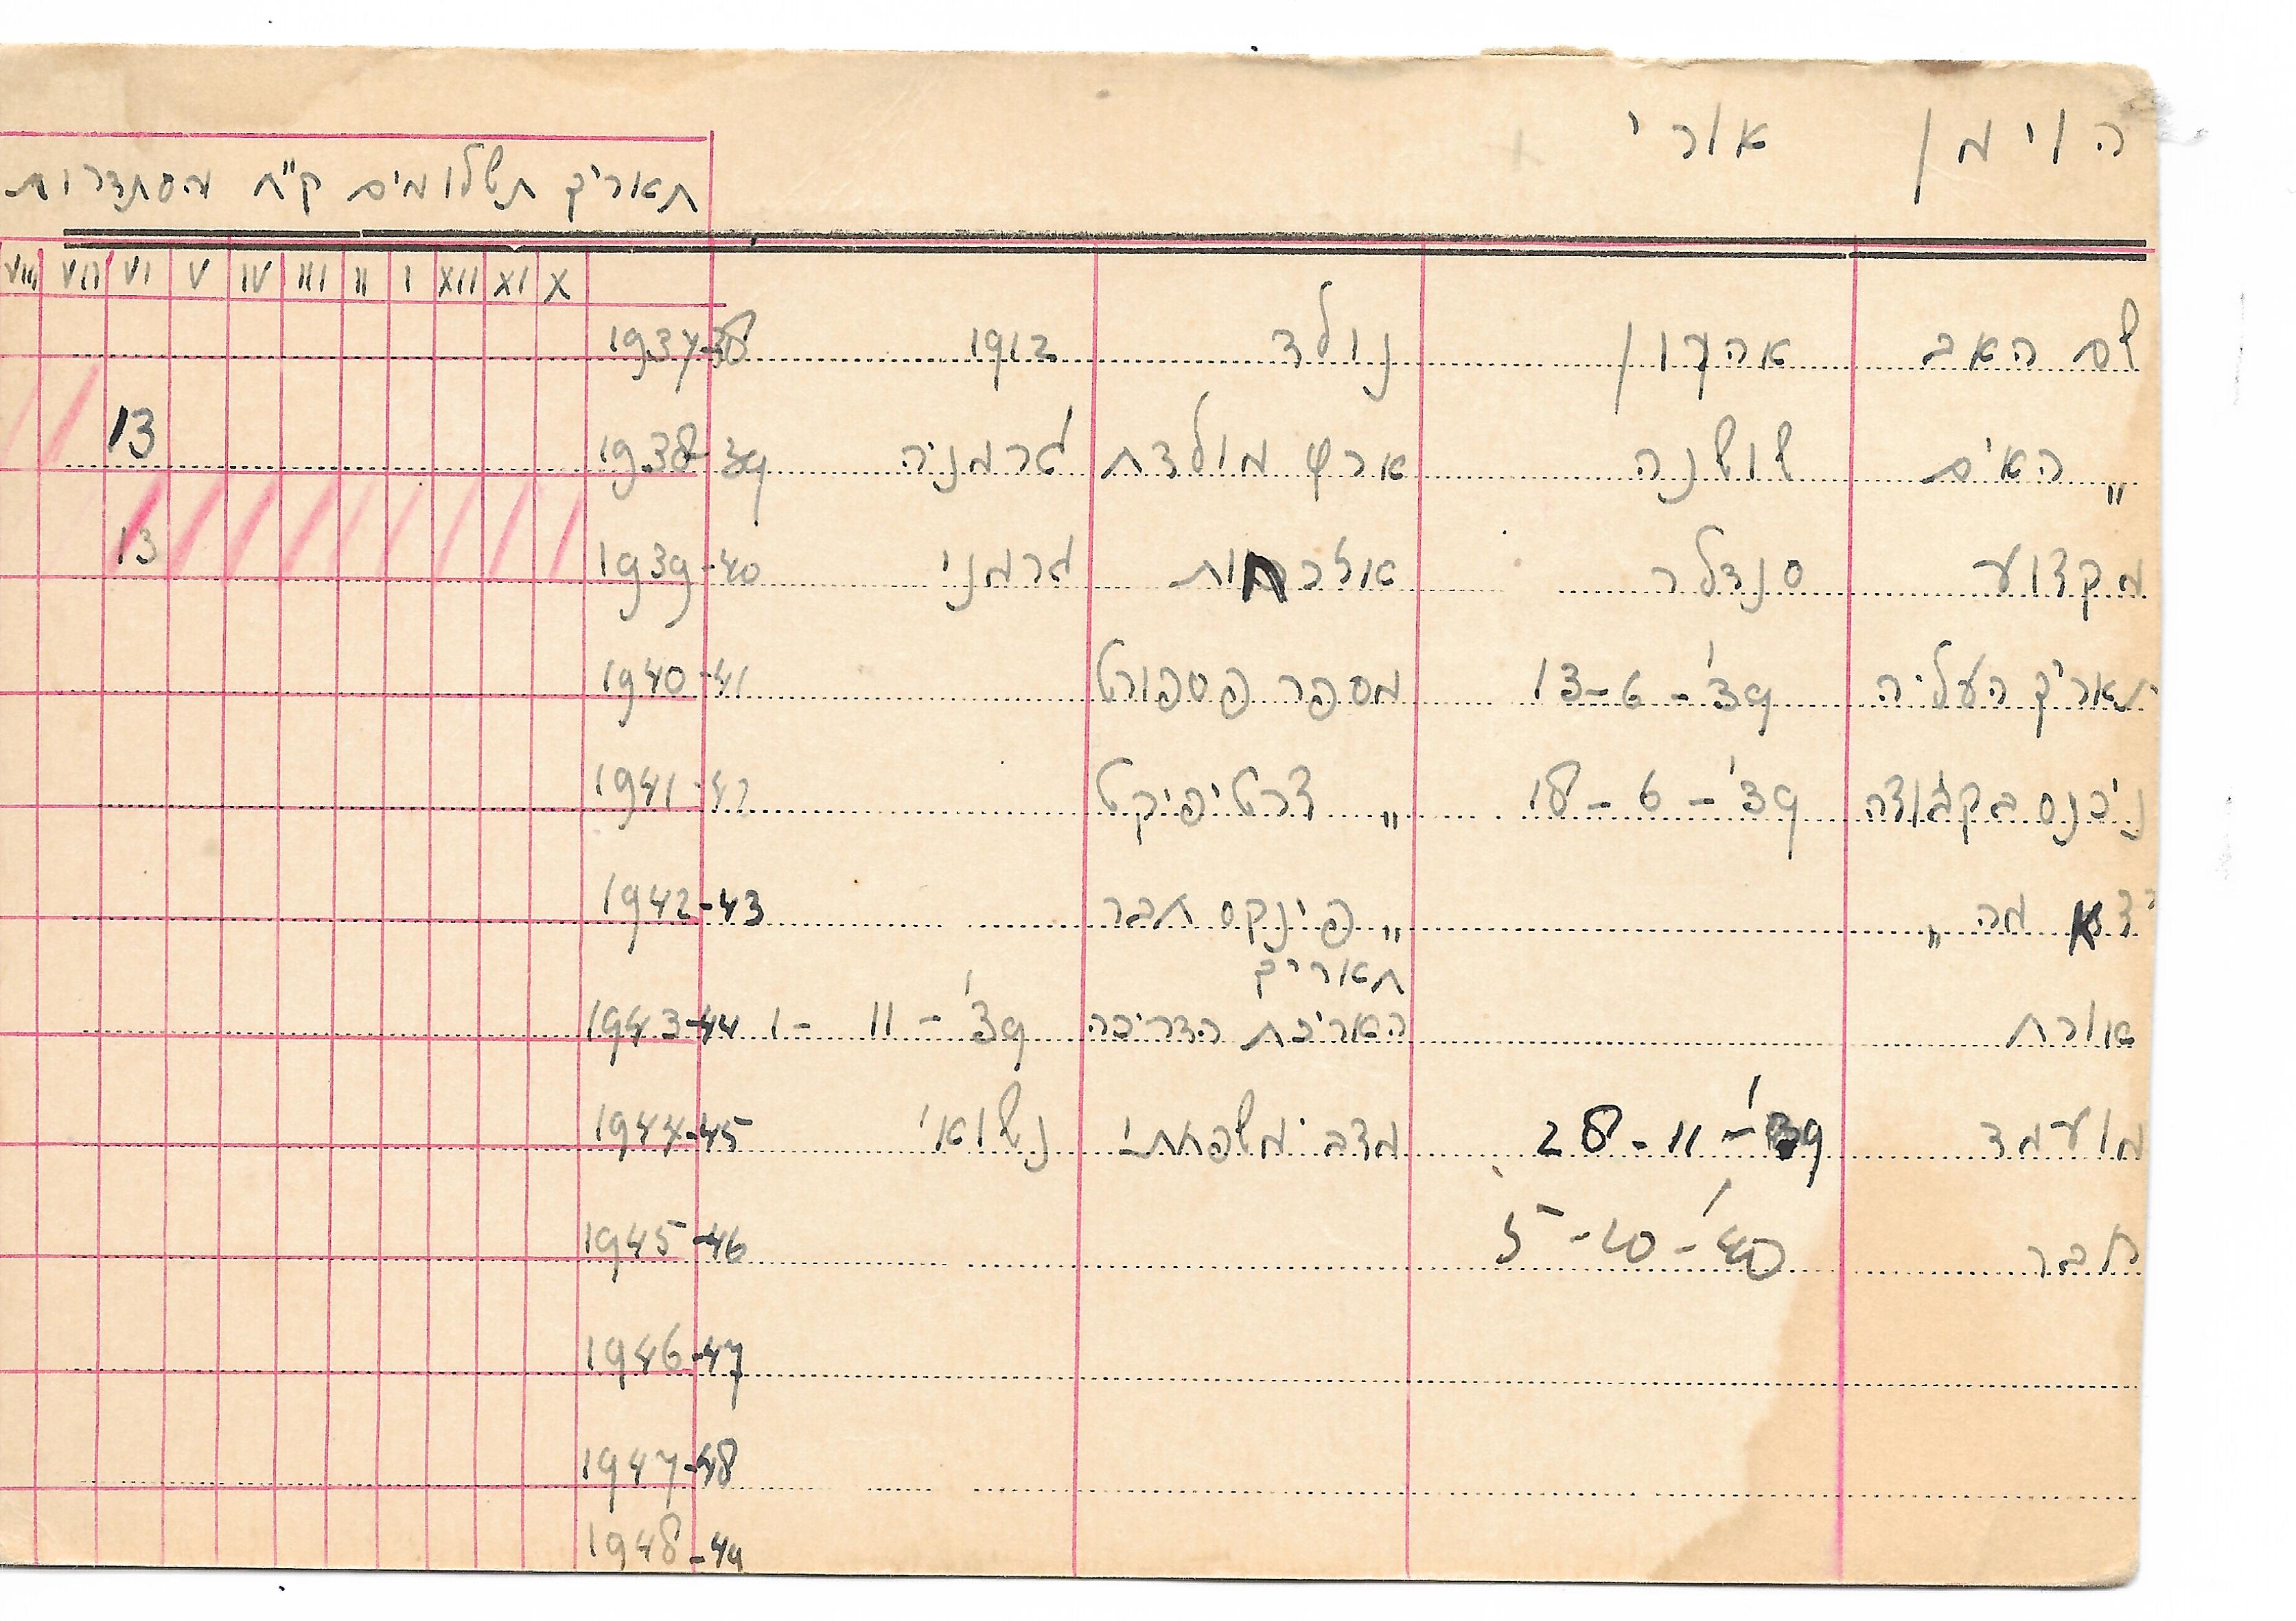 הוימן אורי
תאריך תשלומים ק"ח הסתדרות
X XI XII I II III IV V VI VII VIII
שם האב אהרון נולד 1912 1937-38
" האים שושנה ארץ מולדת גרמניה 1938-39 13
מקצוע סנדלר אזרחות גרמני 1939-40 13
תאריך העליה 13-6-39' מספר פספורט 1940-41
ניכנס בקבוצה 18-6-39' " צרטיפיקט 1941-42
יצא מה " " פינקס חבר 1942-43
תאריך
אורח האריכת הדריכה 1-11-39' 1943-44
מועמד 28-11-39' מצב משפחתי נשואי 1944-45
חבר 5-10-40' 1945-46
1946-47
1947-48
1948-49